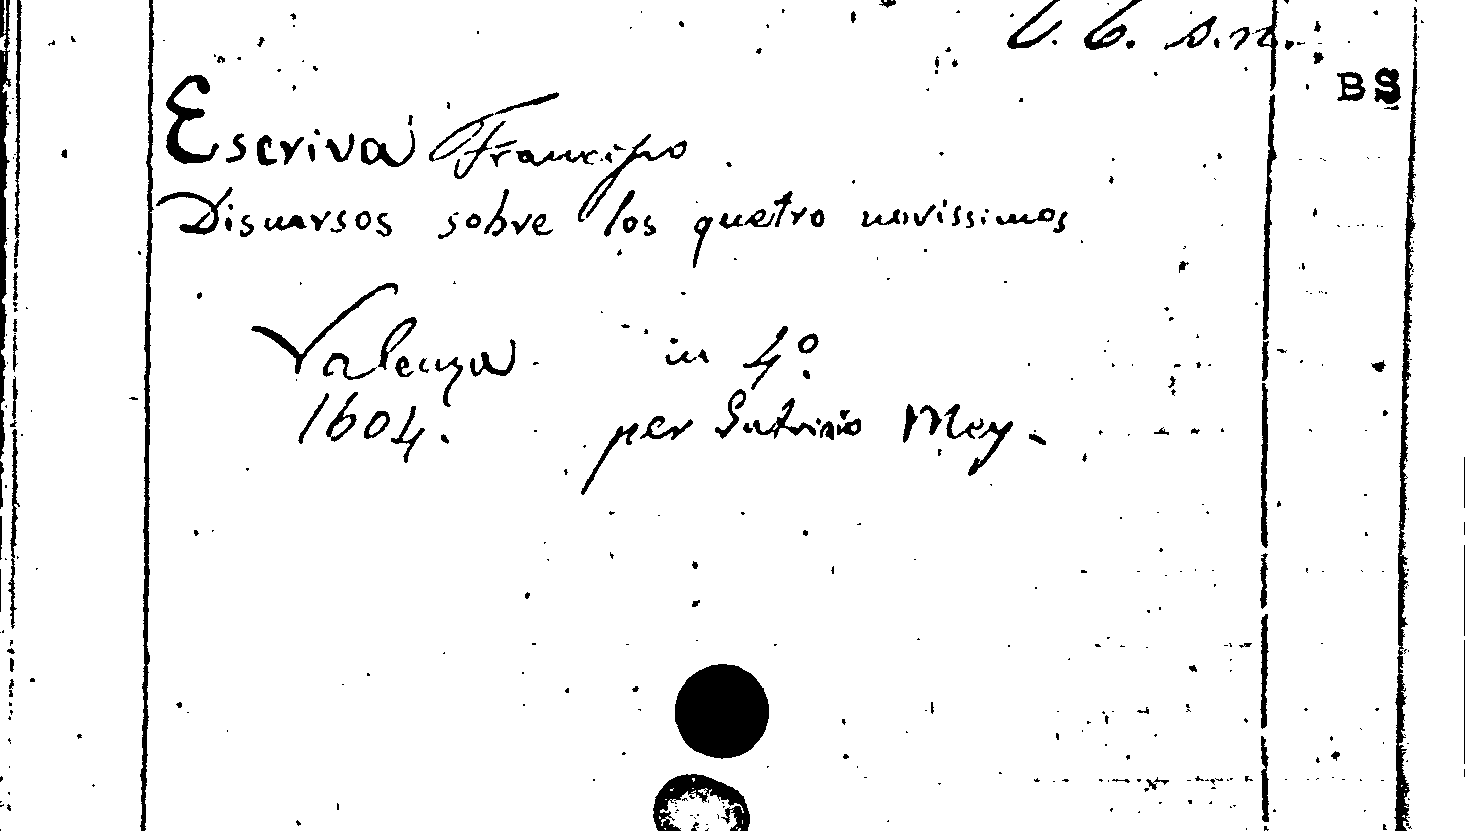 C. C. s.n.
BS
Escrivà Francisco
Discursos sobre los quatro novissimos
Valenza in 4º.
1604. per Patrizio Mey.